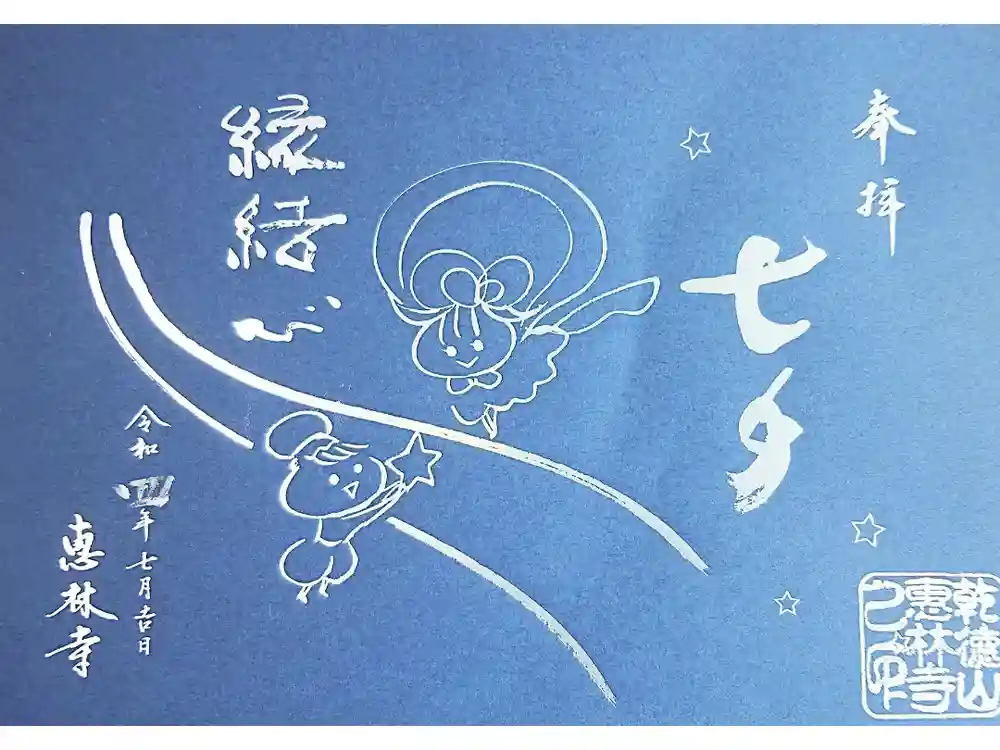 奉拝
七夕
縁結び
令和四年七月吉日
恵林寺
乾徳山
恵林寺